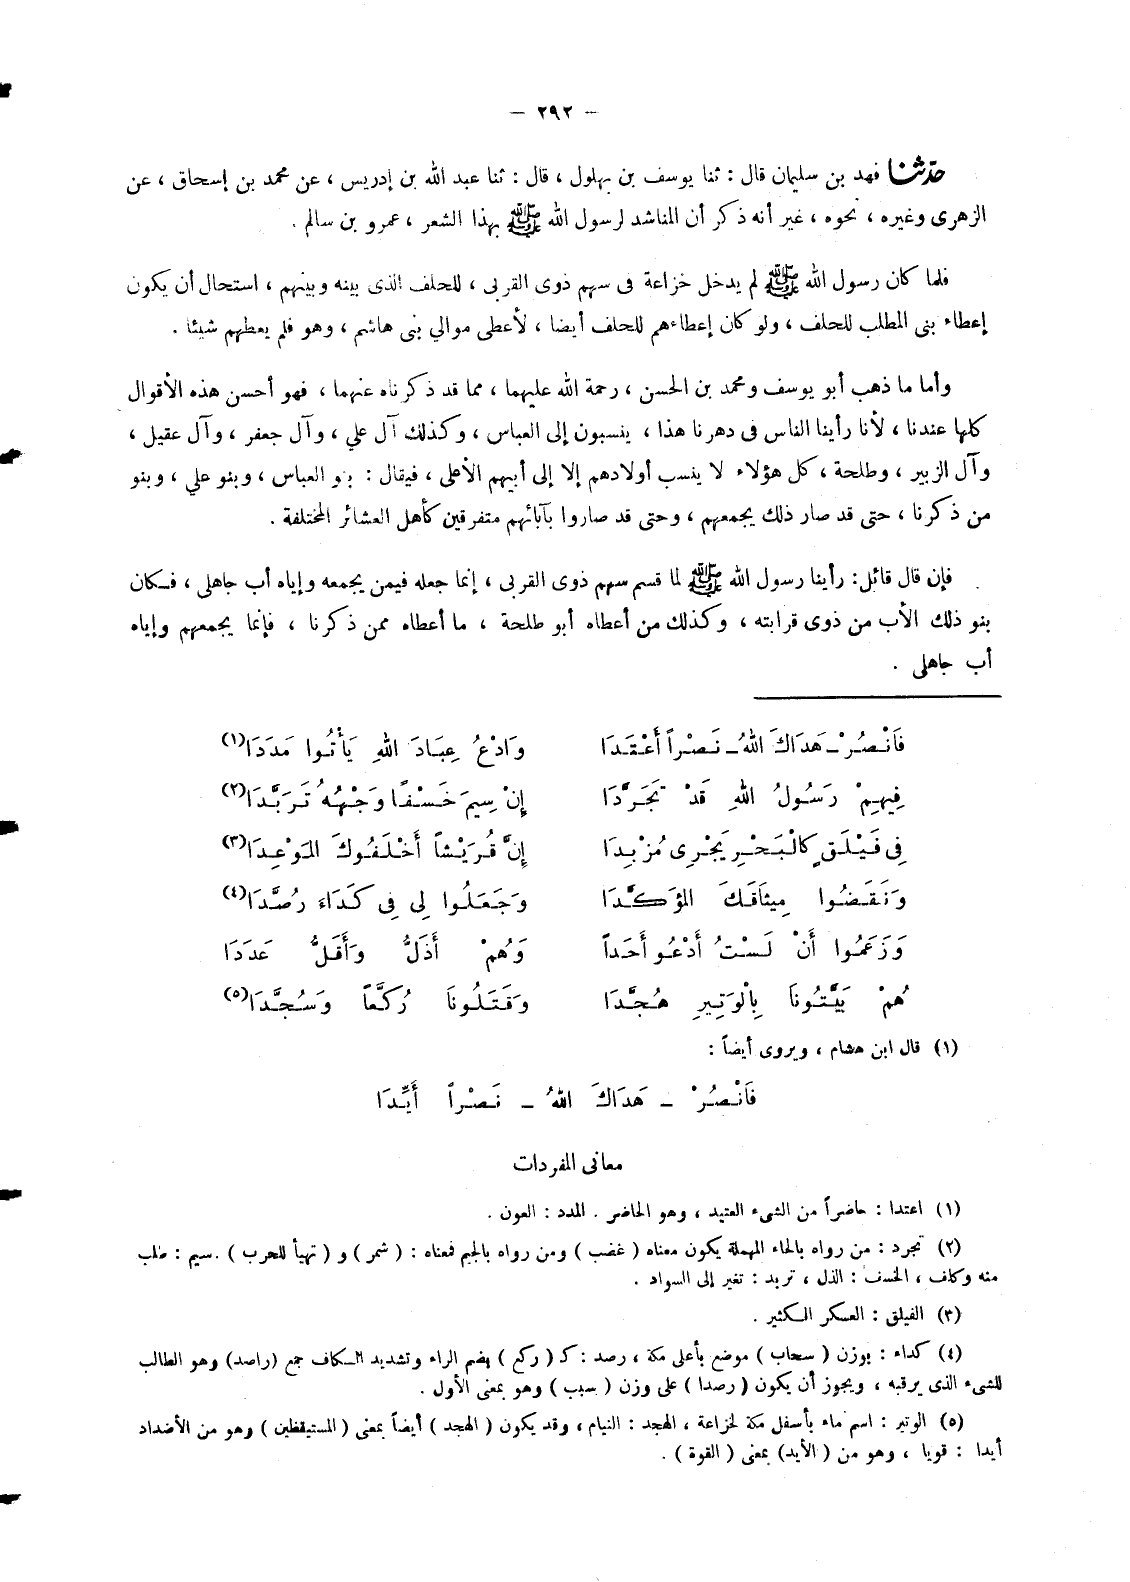 – ٢٩٢ –
حدثنا فهد بن سليمان قال : ثنا يوسف بن بهلول ، قال : ثنا عبد الله بن إدريس ، عن محمد بن إسحاق ، عن
الزهرى وغيره ، نحوه ، غير أنه ذكر أن المناشد لرسول الله ﷺ بهذا الشعر ، عمرو بن سالم .
فلما كان رسول الله ﷺ لم يدخل خزاعة فى سهم ذوى القربى ، للحلف الذى بينه وبينهم ، استحال أن يكون
إعطاء بنى المطلب للحلف ، ولو كان إعطاءهم للحلف أيضا ، لأعطى موالي بنى هاشم ، وهو فلم يعطهم شيئا .
وأما ما ذهب أبو يوسف ومحمد بن الحسن ، رحمة الله عليهما ، مما قد ذكرناه عنهما ، فهو أحسن هذه الأقوال
كلها عندنا ، لأنا رأينا الناس فى دهرنا هذا ، ينسبون إلى العباس ، وكذلك آل علي ، وآل جعفر ، وآل عقيل ،
وآل الزبير ، وطلحة ، كل هؤلاء لا ينسب أولادهم إلا إلى أبيهم الأعلى ، فيقال : بنو العباس ، وبنو علي ، وبنو
من ذكرنا ، حتى قد صار ذلك يجمعهم ، وحتى قد صاروا بآبائهم متفرقين كأهل العشائر المختلفة .
فإن قال قائل : رأينا رسول الله ﷺ لما قسم سهم ذوى القربى ، إنما جعله فيمن يجمعه وإياه أب جاهلى ، فكان
بنو ذلك الأب من ذوى قرابته ، وكذلك من أعطاه أبو طلحة ، ما أعطاه ممن ذكرنا ، فإنما يجمعهم وإياه
أب جاهلى .
فَانْصُرْ ـ هَدَاكَ اللهُ ـ نَصْراً أَعْتَدَا وَادْعُ عِبَادَ اللهِ يَأْتُوا مَدَدَا (١)
فِيهِمْ رَسُولُ اللهِ قَدْ تَجَرَّدَا إِنْ سِيمَ خَسْفًا وَجْهُهُ تَرَبَّدَا (٢)
فِى فَيْلَقٍ كَالْبَحْرِ يَجْرِى مُزْبِدَا إِنَّ قُرَيْشاً أَخْلَفُوكَ المَوْعِدَا (٣)
وَنَقَضُوا مِيثَاقَكَ المُؤَكَّدَا وَجَعَلُوا لِى فِى كَدَاءَ رُصَّدَا (٤)
وَزَعَمُوا أَنْ لَسْتُ أَدْعُو أَحَداً وَهُمْ أَذَلُّ وَأَقَلُّ عَدَدَا
هُمْ بَيَّتُونَا بِالْوَتِيرِ هُجَّدَا وَقَتَلُونَا رُكَّعاً وَسُجَّدَا (٥)
(١) قال ابن هشام ، ويروى أيضاً :
فَانْصُرْ – هَدَاكَ اللهُ – نَصْراً أَيِّدَا
معانى المفردات
(١) اعتدا : حاضراً من الشىء العتيد ، وهو الحاضر . المدد : العون .
(٢) تجرد : من رواه بالحاء المهملة يكون معناه ( غضب ) ومن رواه بالجيم فمعناه : ( شمر ) و ( تهيأ للحرب ) . سيم : طلب
منه وكلف ، الخسف : الذل ، تربد : تغير إلى السواد .
(٣) الفيلق : العسكر الكثير .
(٤) كداء : بوزن ( سحاب ) موضع بأعلى مكة ، رصد : كـ ( ركع ) بضم الراء وتشديد الكاف جمع (راصد) وهو الطالب
للشىء الذى يرقبه ، ويجوز أن يكون ( رصدا ) على وزن ( سبب ) وهو بمعنى الأول .
(٥) الوتير : اسم ماء بأسفل مكة لخزاعة ، الهجد : النيام ، وقد يكون ( الهجد ) أيضاً بمعنى ( المستيقظين ) وهو من الأضداد
أيدا : قويا ، وهو من ( الأيد) بمعنى ( القوة ) .